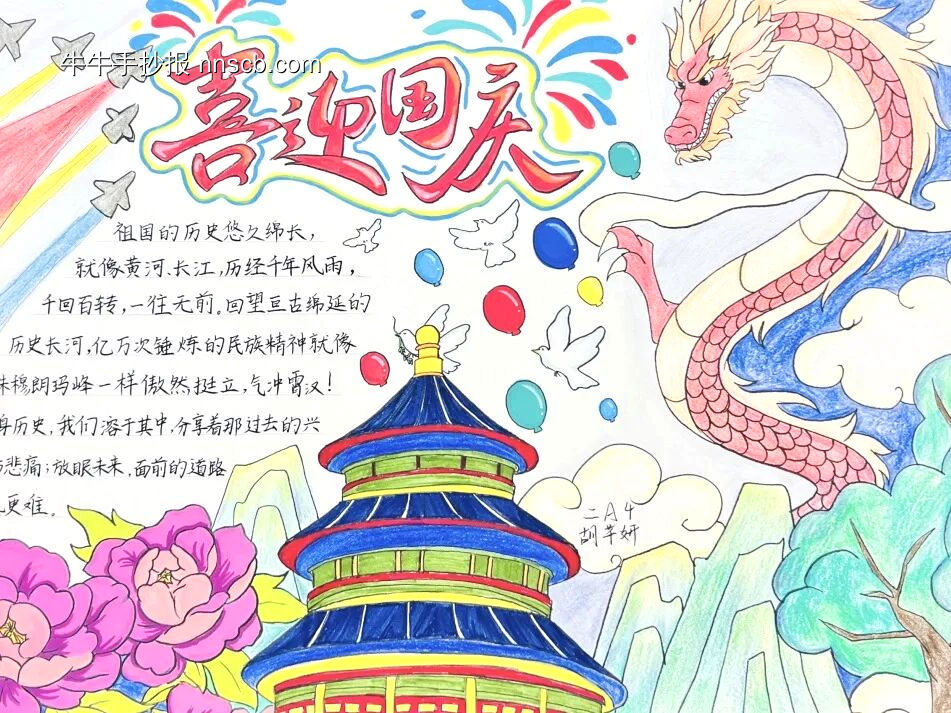 牛牛手抄报 nnscb.com
喜迎国庆
祖国的历史悠久绵长，
就像黄河、长江，历经千年风雨，
千回百转，一往无前。回望亘古绵延的
历史长河，亿万次锤炼的民族精神就像
珠穆朗玛峰一样傲然挺立，气冲霄汉！
历史，我们溶于其中，分享着那过去的兴
悲痛；放眼未来，面前的道路
更难。
二A4
胡芊妍